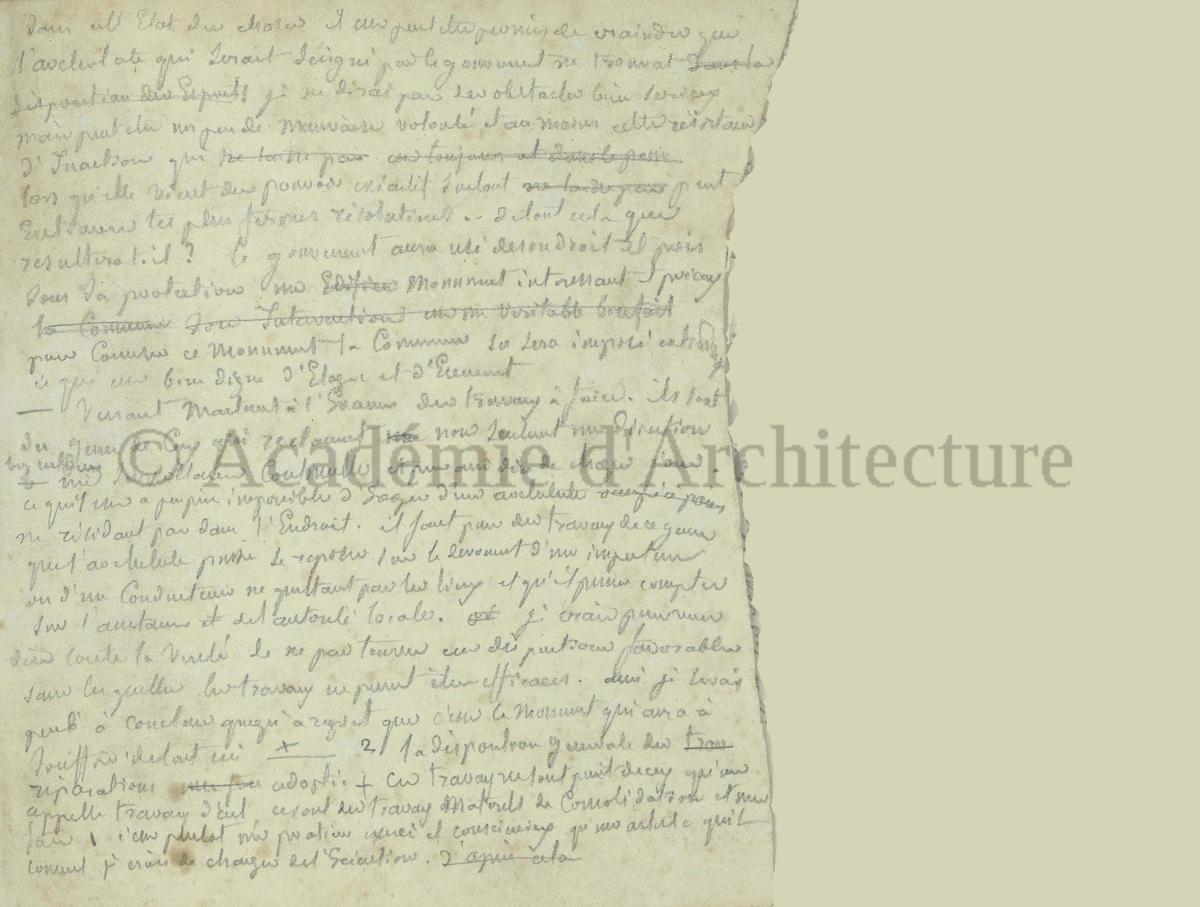 dans cet Etat de choses il me peut etre permis de craindre que
l'architecte qui serait désigné par le gouvernement ne trouvat dans la
disposition des Esprits je ne dirai pas des obstacles bien serieux
mais peut etre un peu de mauvaise volonté et au moins cette résistance
d'Inaction qui ne laisse pas en toujours et dans le
lors qu'elle vient du pouvoir exécutif surtout peut
Entraver les plus fermes résolutions. de tout cela que
resultera t-il ? le gouvernement aura usé de son droit et pris
sous sa protection un Edifice Monument interessant et précieux
la Commune Son Intervention un veritable bienfait
pour Conserver ce Monument la Commune se sera imposé
ce qui est bien digne d'Eloges et d'
— Venant Maintenant à l'Examen des travaux à faire. ils sont
du genre de Ceux qui reclament non seulement une Direction
une surveillance Continuelle et pour ainsi dire de chaque jour.
ce qu'il est a peu près impossible d'Exiger d'un architecte
ne résidant pas dans l'Endroit. il faut pour des travaux de ce genre
que l'architecte puisse se reposer sur le devouement d'un inspecteur
ou d'un Conducteur ne quittant pas les lieux et qu'il puisse compter
sur l' et de l'autorité locale. je crains pour vous
dire toute la Verité de ne pas trouver ces dispositions favorables
sans lesquelles les travaux ne peuvent être efficaces. ainsi je serais
porté à conclure quoiqu'a regret que c'est le Monument qui aura à
souffrir de tout ceci + 2 la disposition generale des trav
réparations adopté. + ces travaux ne sont point de ceux qu'on
appelle travaux d'art, ce sont des travaux Materiels de Consolidation et
c'est plutot un praticien exercé et consciencieux qu'un artiste qu'il
convient je crois de charger de l'Exécution. d'après cela
© Académie d'Architecture